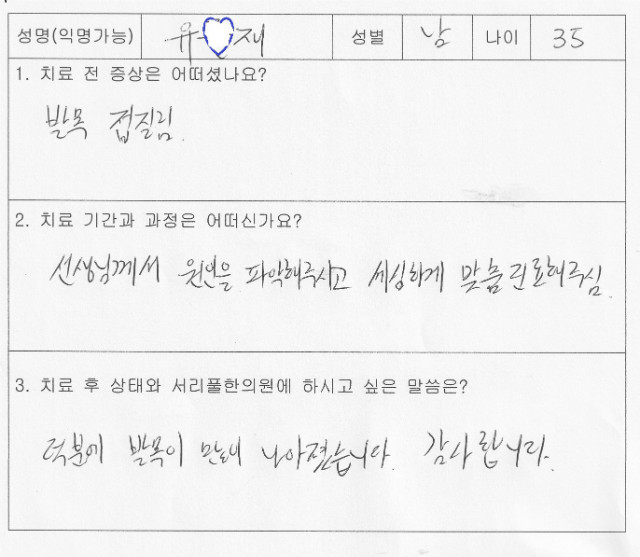 성명(익명가능) 유 재 성별 남 나이 35
1. 치료 전 증상은 어떠셨나요?
발목 접질림.
2. 치료 기간과 과정은 어떠신가요?
선생님께서 원인을 파악해주시고 세심하게 맞춤진료해주심.
3. 치료 후 상태와 서리풀한의원에 하시고 싶은 말씀은?
덕분에 발목이 많이 나아졌습니다. 감사합니다.